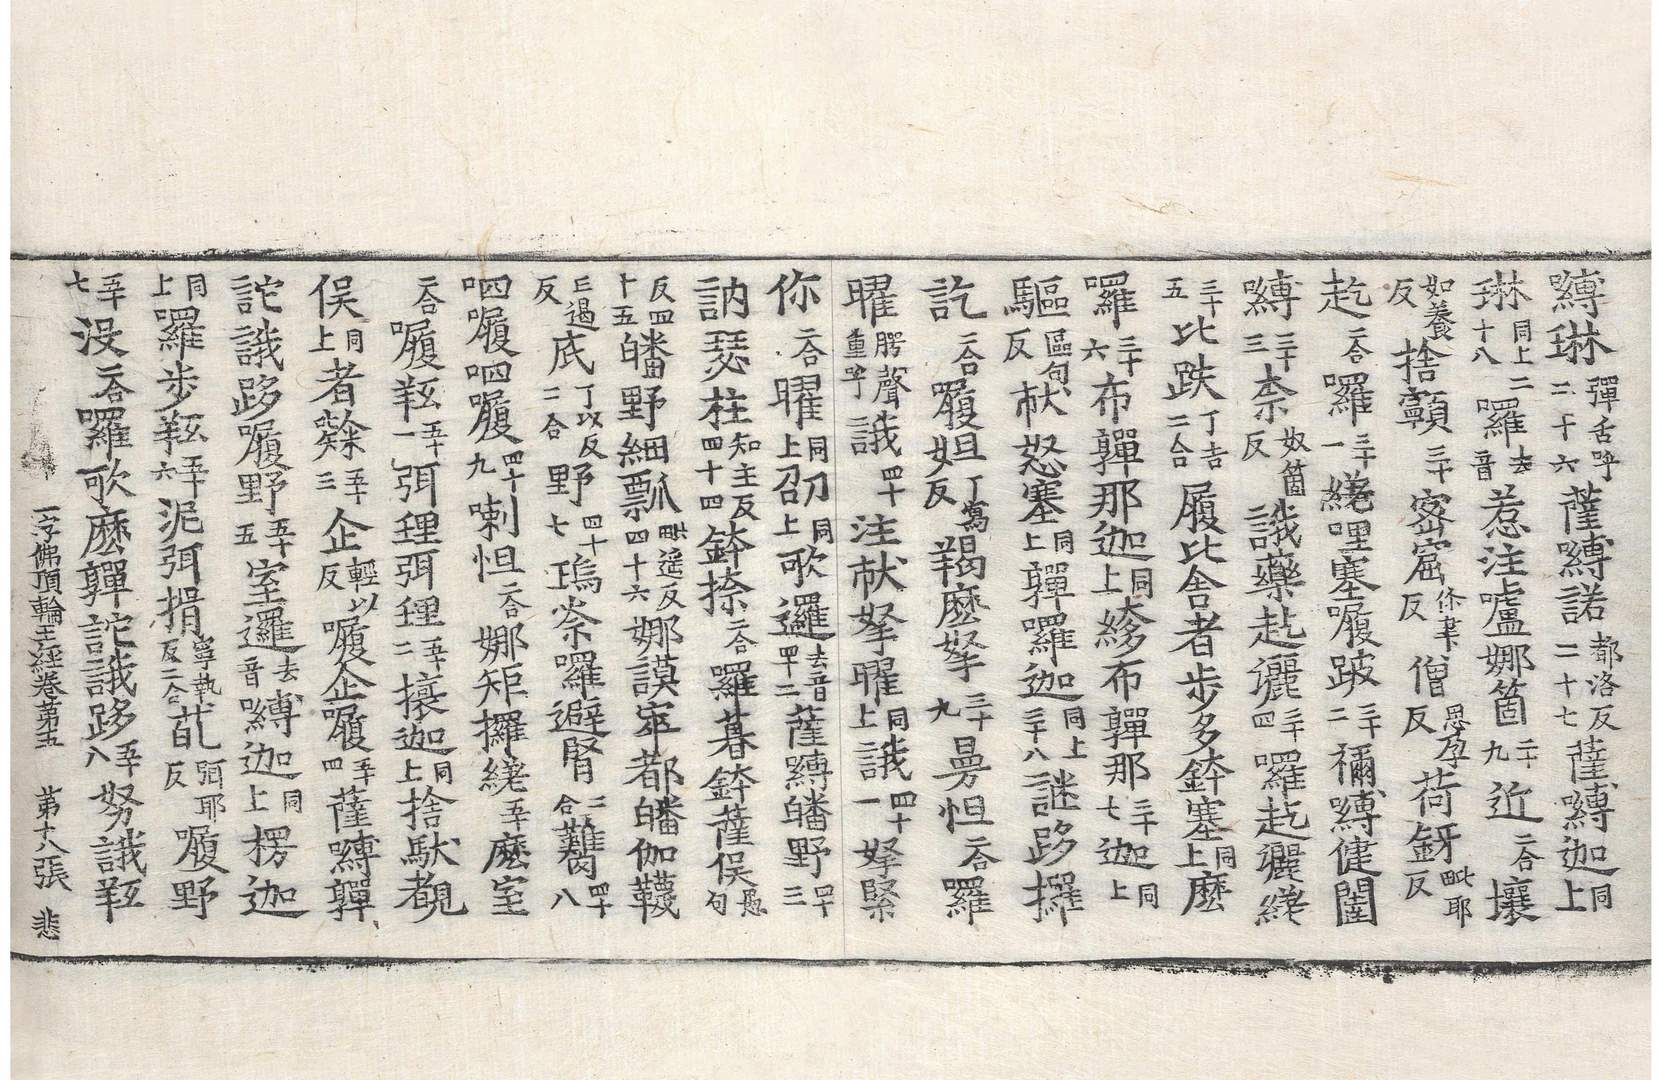 嚩琳彈舌呼二十六薩嚩諾都洛反二十七薩嚩迦同上
琳同上二十八囉去音惹注嚧娜箇二十九近二合壤
如養反捨顐三十窣窟僧反思孕反荷釾毗耶反
訖二合囉三十一繞哩塞履跛三十二禰嚩健闥
嚩三十三柰奴箇反誐藥訖灑三十四囉訖灑繞
三十五比跌丁吉二合履比舍者步多鉢塞同上麼
囉三十六布嚲那迦同上緣布嚲那三十七迦同上
驅區句反枤怒塞同上嚲囉迦同上三十八謎跢攞
訖二合履怛丁寫反羯麼拏三十九曷怛二合囉
曜腭聲重呼誐四十注枤拏曜同上誐四十一拏緊
你二合曜同上刀召同上歌邏去音四十二薩嚩皤野四十三
訥瑟柱知主反四十四鉢捺二合囉暮鉢薩俁愚句
反四十五皤野細瓢毗遥反四十六娜謨窣都皤伽韈
三遏反底丁以反二合野四十七塢柰囉避腎二合鞨四十八
呬履呬履四十九喇怛二合娜矩攞繞五十麼室
二合履䍧五十一弭狸弭狸五十二攘迦同上捨䭾覩
俁同上者㰼五十三企輕以反履企履五十四薩嚩嚲
詫誐跢履野五十五室邏去音嚩迦同上楞迦
同上囉步䍧五十六泥弭捐寧執反二合乿頭耶反履野
五十七没二合囉歌麼嚲詫誐跢五十八努誐䍧
一字佛頂輪王經卷第五 第十八張 悲